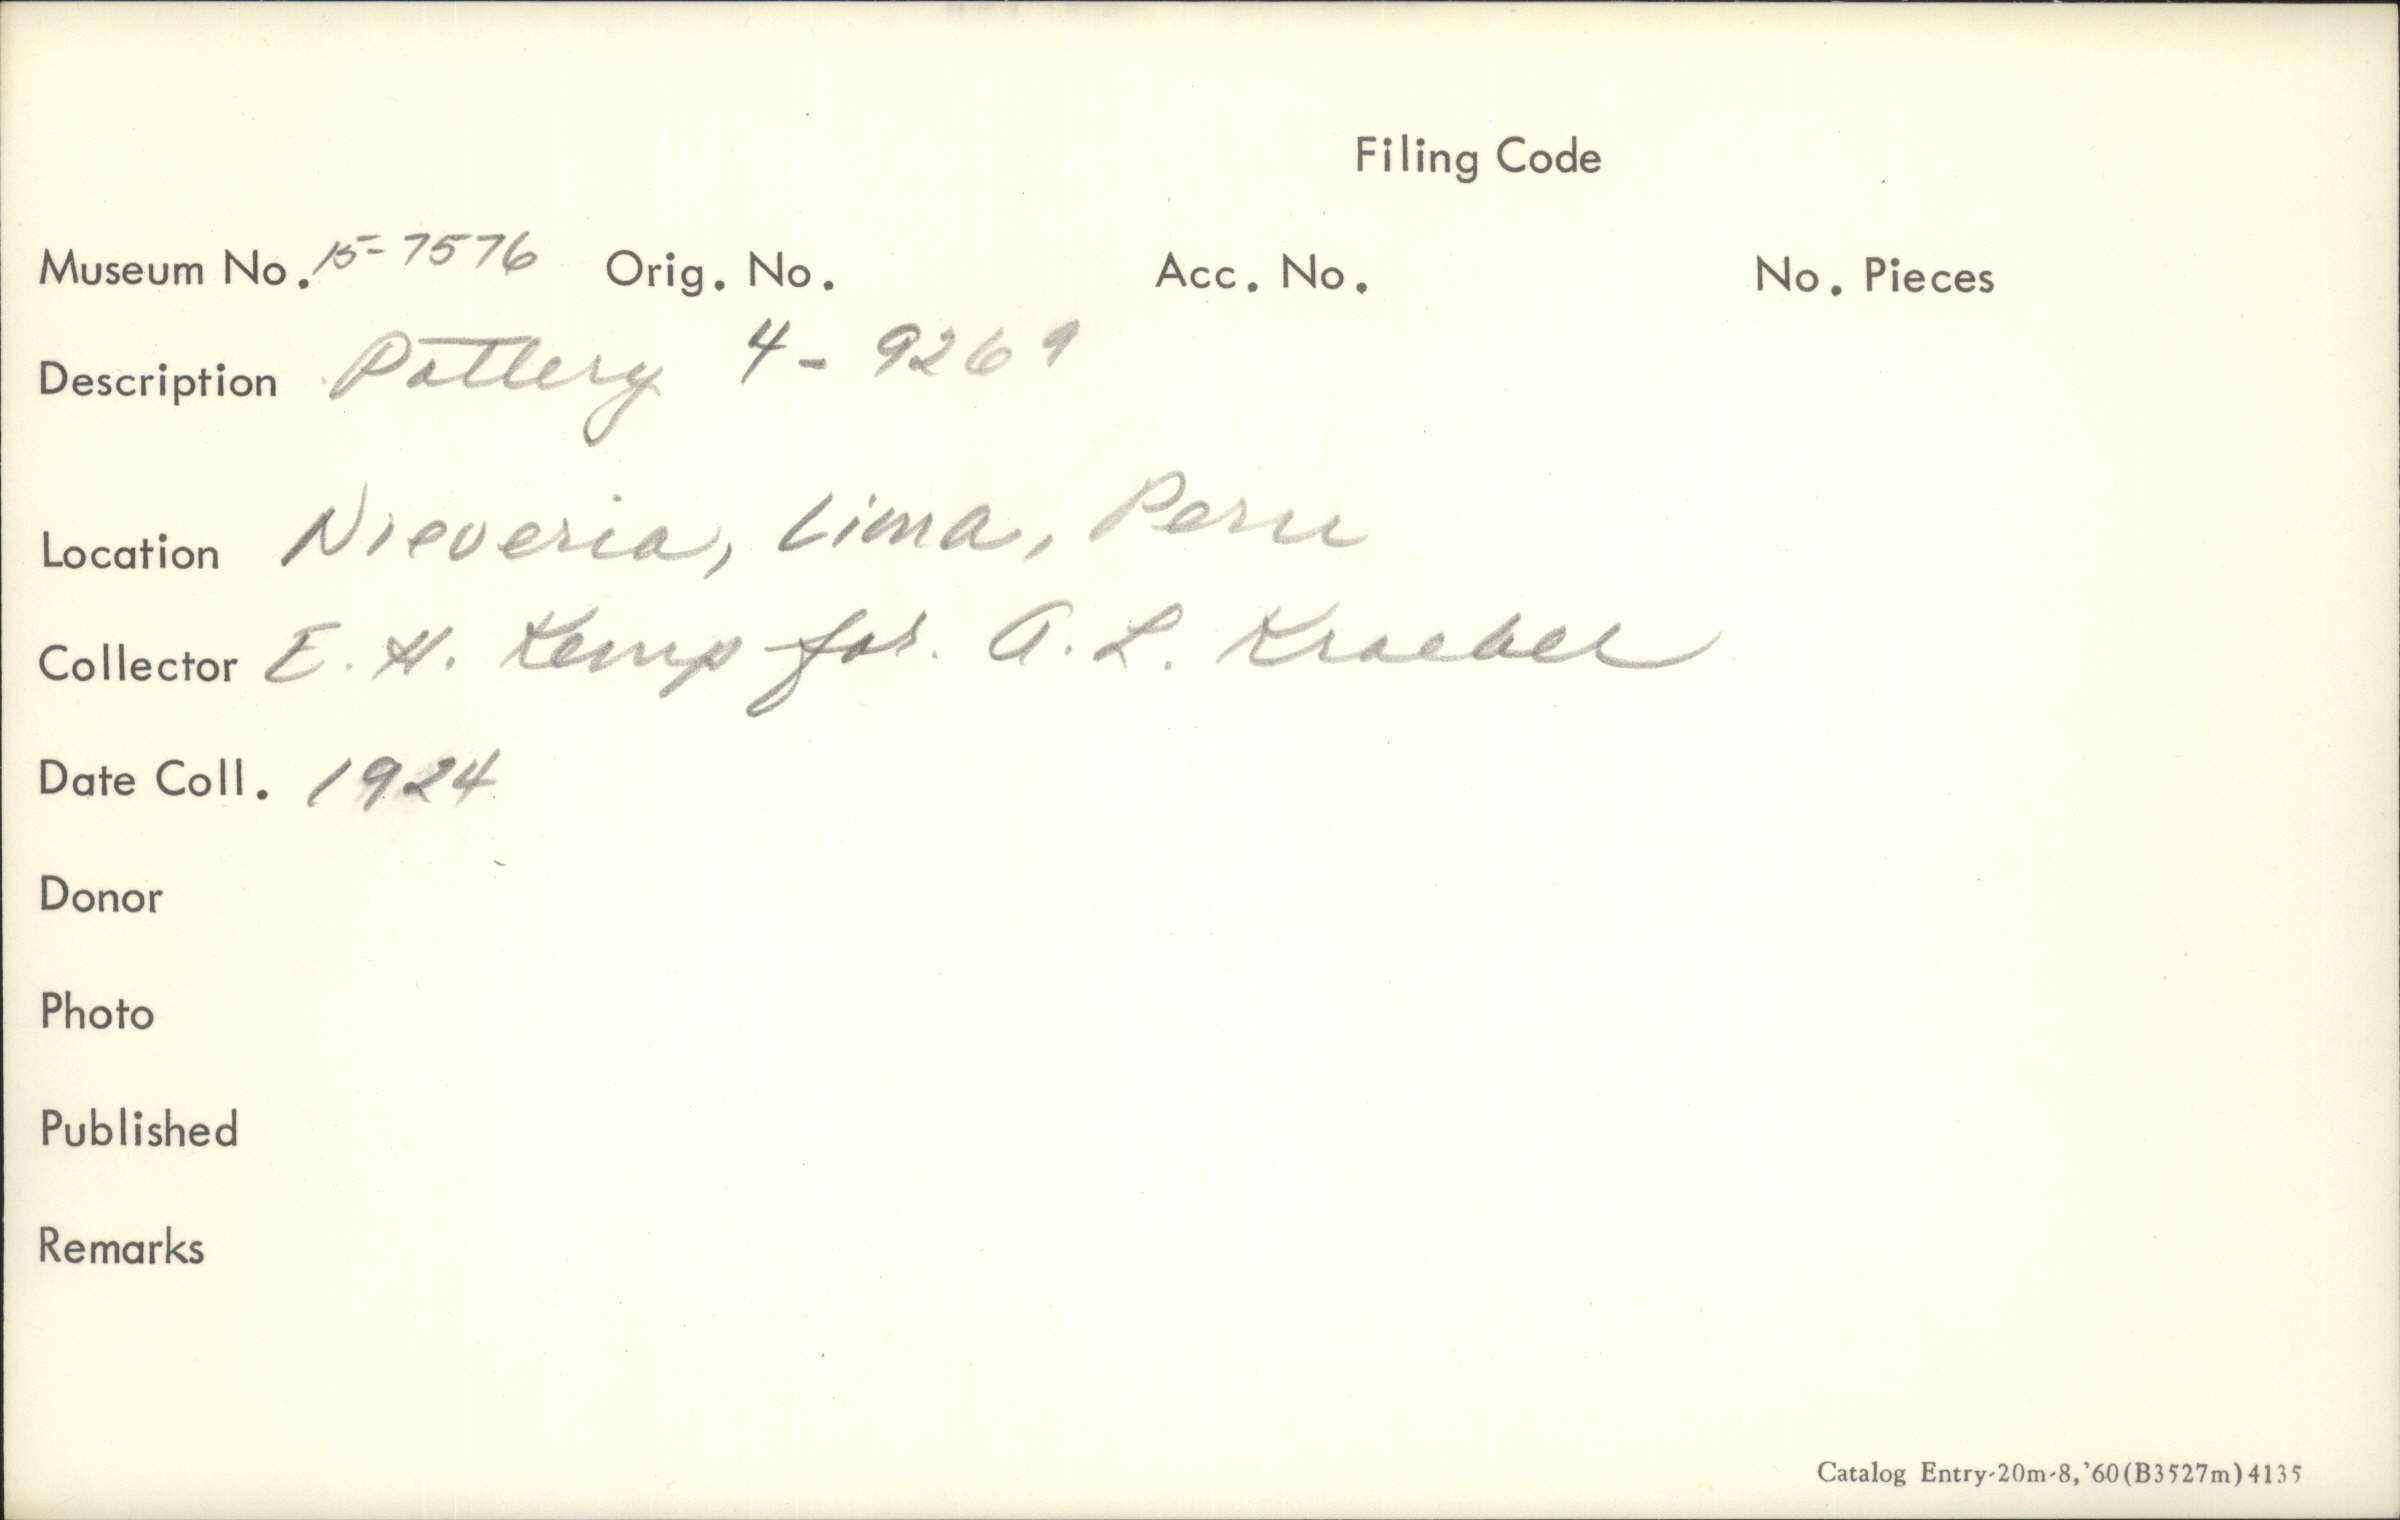 Filing Code
Museum No. 15-7576 Orig. No. Acc. No. No. Pieces
Description Pottery 4-9269
Location Nieveria, Lima, Peru
Collector E. H. Kemp for A. L. Kroeber
Date Coll. 1924
Donor
Photo
Published
Remarks
Catalog Entry-20m-8,'60(B3527m)4135